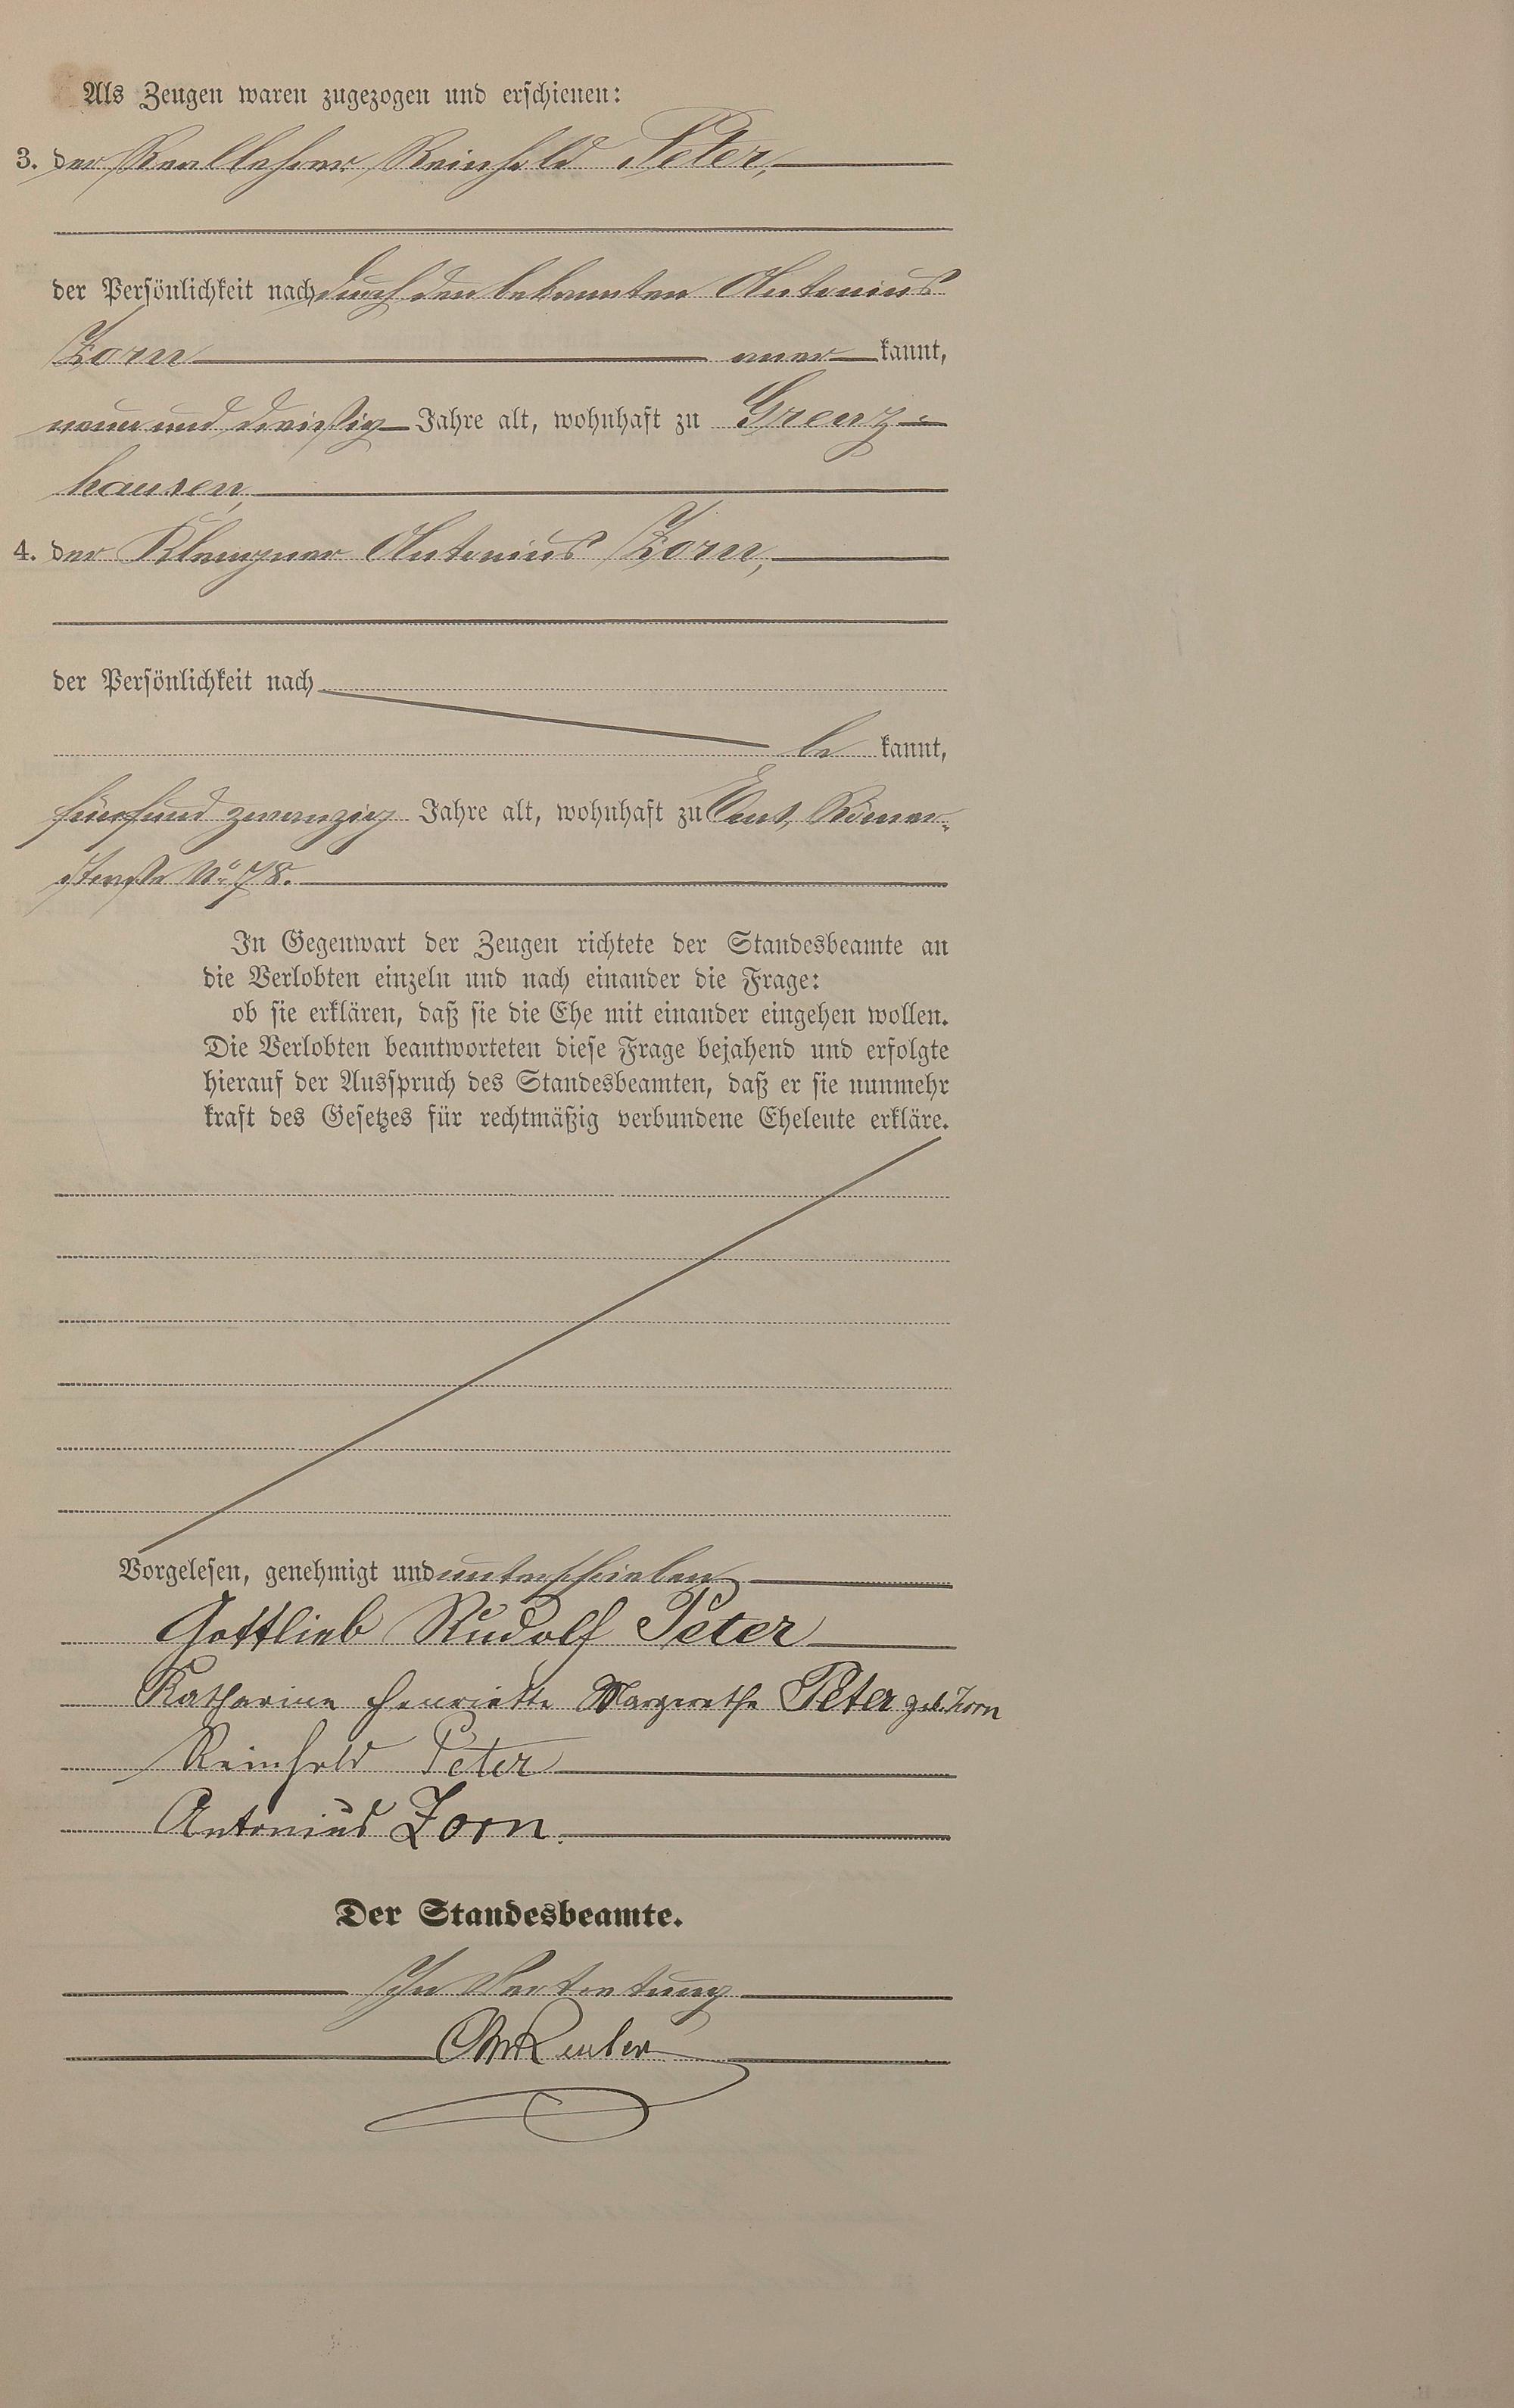 Als Zeugen waren zugezogen und erschienen:
3. der Reallehrer Reinhold Peter,
der Persönlichkeit nach durch den bekannten Antonius
Zorn anerkannt,
neun und dreißig Jahre alt, wohnhaft zu Grenz-
hausen,
4. der Klempner Antonius Zorn,
der Persönlichkeit nach
bekannt,
fünfund zwanzig Jahre alt, wohnhaft zu Ems, Römer-
straße No 78.
In Gegenwart der Zeugen richtete der Standesbeamte an
die Verlobten einzeln und nach einander die Frage:
ob sie erklären, daß sie die Ehe mit einander eingehen wollen.
Die Verlobten beantworteten diese Frage bejahend und erfolgte
hierauf der Ausspruch des Standesbeamten, daß er sie nunmehr
kraft des Gesetzes für rechtmäßig verbundene Eheleute erkläre.
Vorgelesen, genehmigt und unterschrieben
Gottlieb Rudolf Peter
Katharine Henriette Margarethe Peter geb. Zorn
Reinhold Peter
Antonius Zorn.
Der Standesbeamte.
In Vertretung